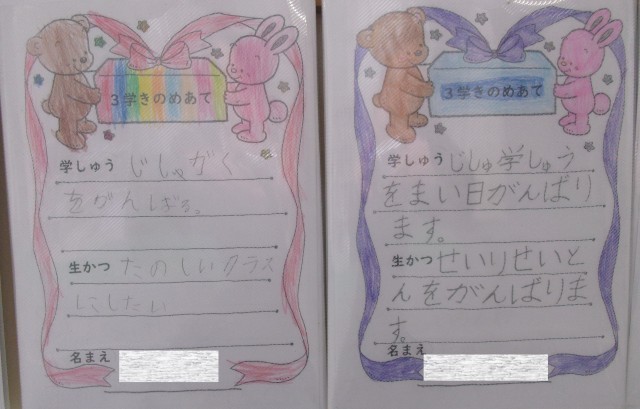 3学きのめあて
学しゅう じしゅがく
をがんばる。
生かつ たのしいクラス
にしたい
名まえ
3学きのめあて
学しゅう じしゅ学しゅう
をまい日がんばり
ます。
生かつ せいりせいと
んをがんばりま
す。
名まえ